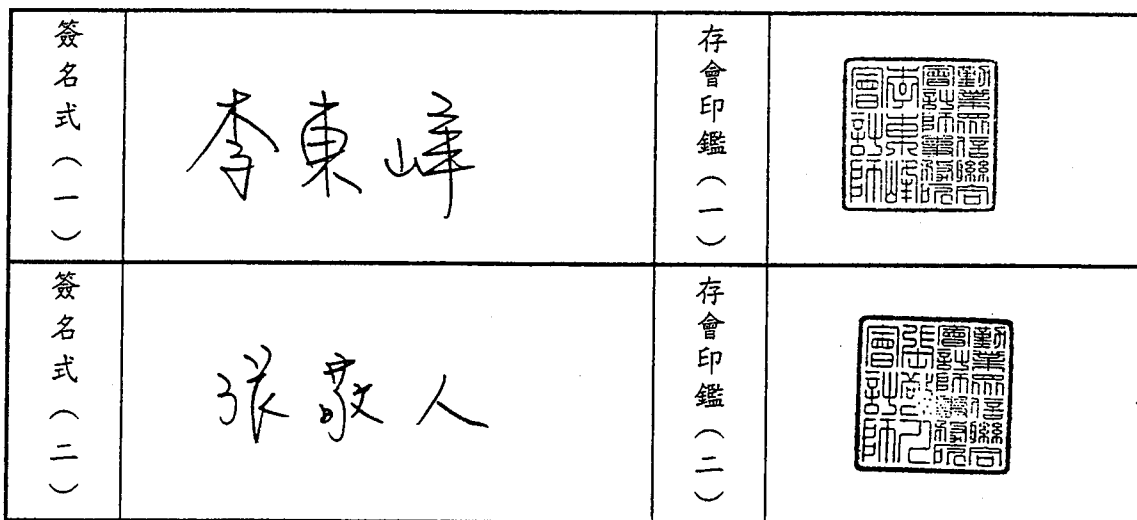 簽名式（一）
李東峰
存會印鑑（一）
勤業眾信聯合會計師事務所李東峰會計師
簽名式（二）
張敬人
存會印鑑（二）
勤業眾信聯合會計師事務所張敬人會計師